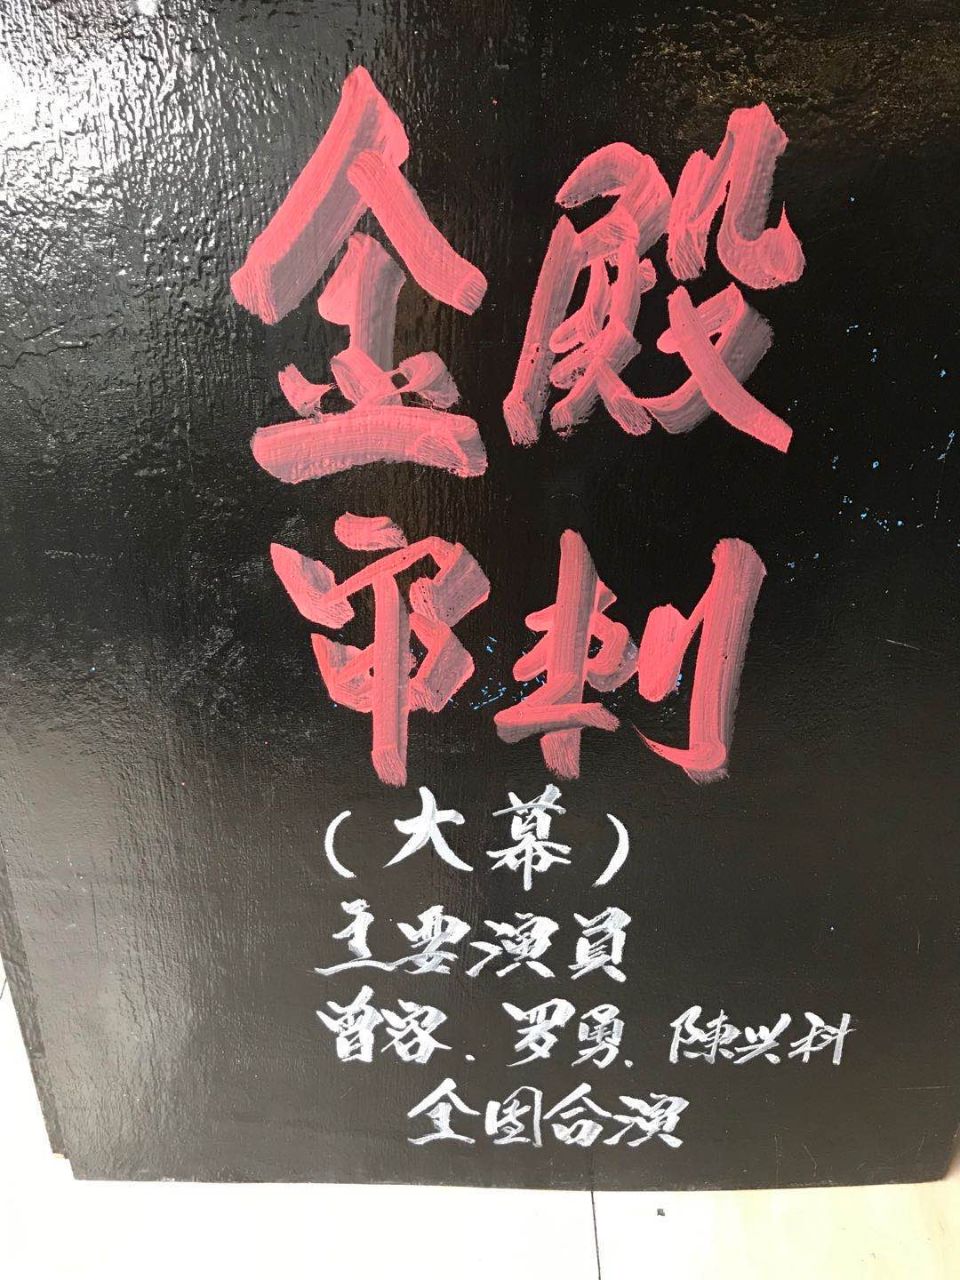 金殿
审判
（大幕）
主要演員
曾容、罗勇、陳兴科
全团合演